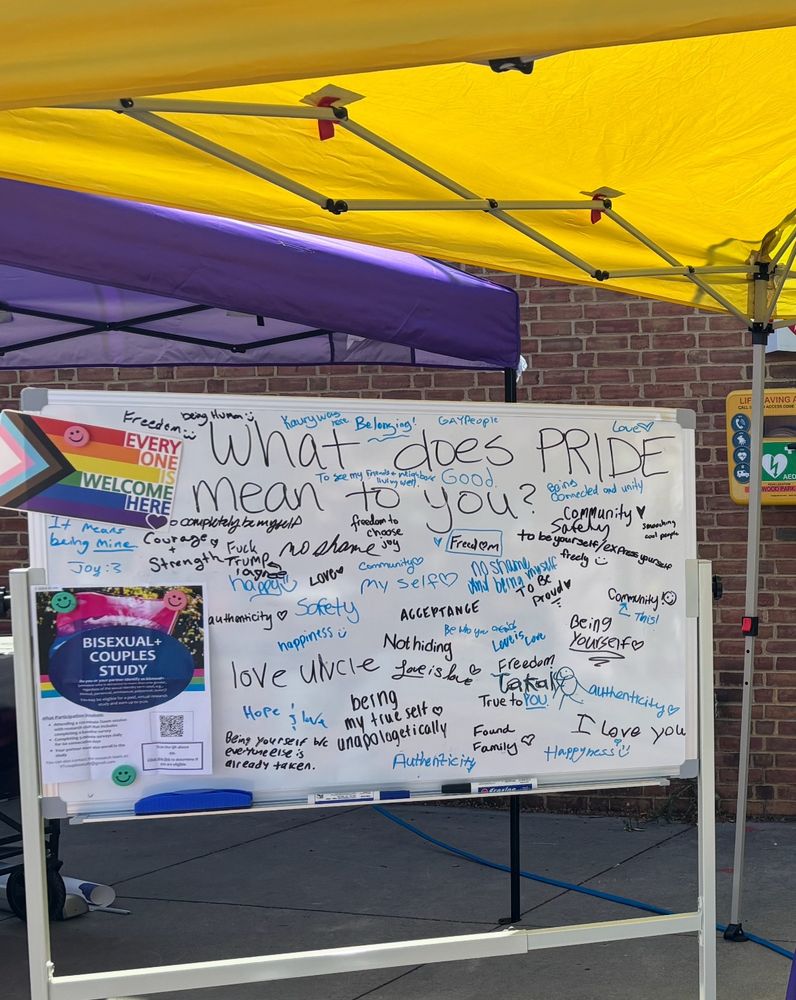 Freedom
being Human
Kaury was
here
Belonging!
GAY People
Love
What does PRIDE
mean to you?
To see my friends & neighbors
living well.
Good
Being
connected and unity
EVERY
ONE
IS
WELCOME
HERE
LIFE SAVING A
AED
WOOD PARK
It means
being Mine
Joy :3
to completely be myself
Courage
+
Strength
Fuck
Trump
no shame
freedom to
choose
joy
Freedom
Community
Safety
to be yourself/express yourself
freely
cool people
happy
Love
Community
My self
no shame
and being myself
TO BE
Proud
Community!
This!
authenticity
Safety
ACCEPTANCE
happiness
Not hiding
Love is Love
Being
Yourself
BISEXUAL+
COUPLES
STUDY
love uncle
Love is love
Freedom
True to YOU
authenticity
Hope & love
being
my true self
unapologetically
I love you
Being yourself bc
everyone else is
already taken.
Found
Family
Happyness
Authenticity
What Participation Involves: